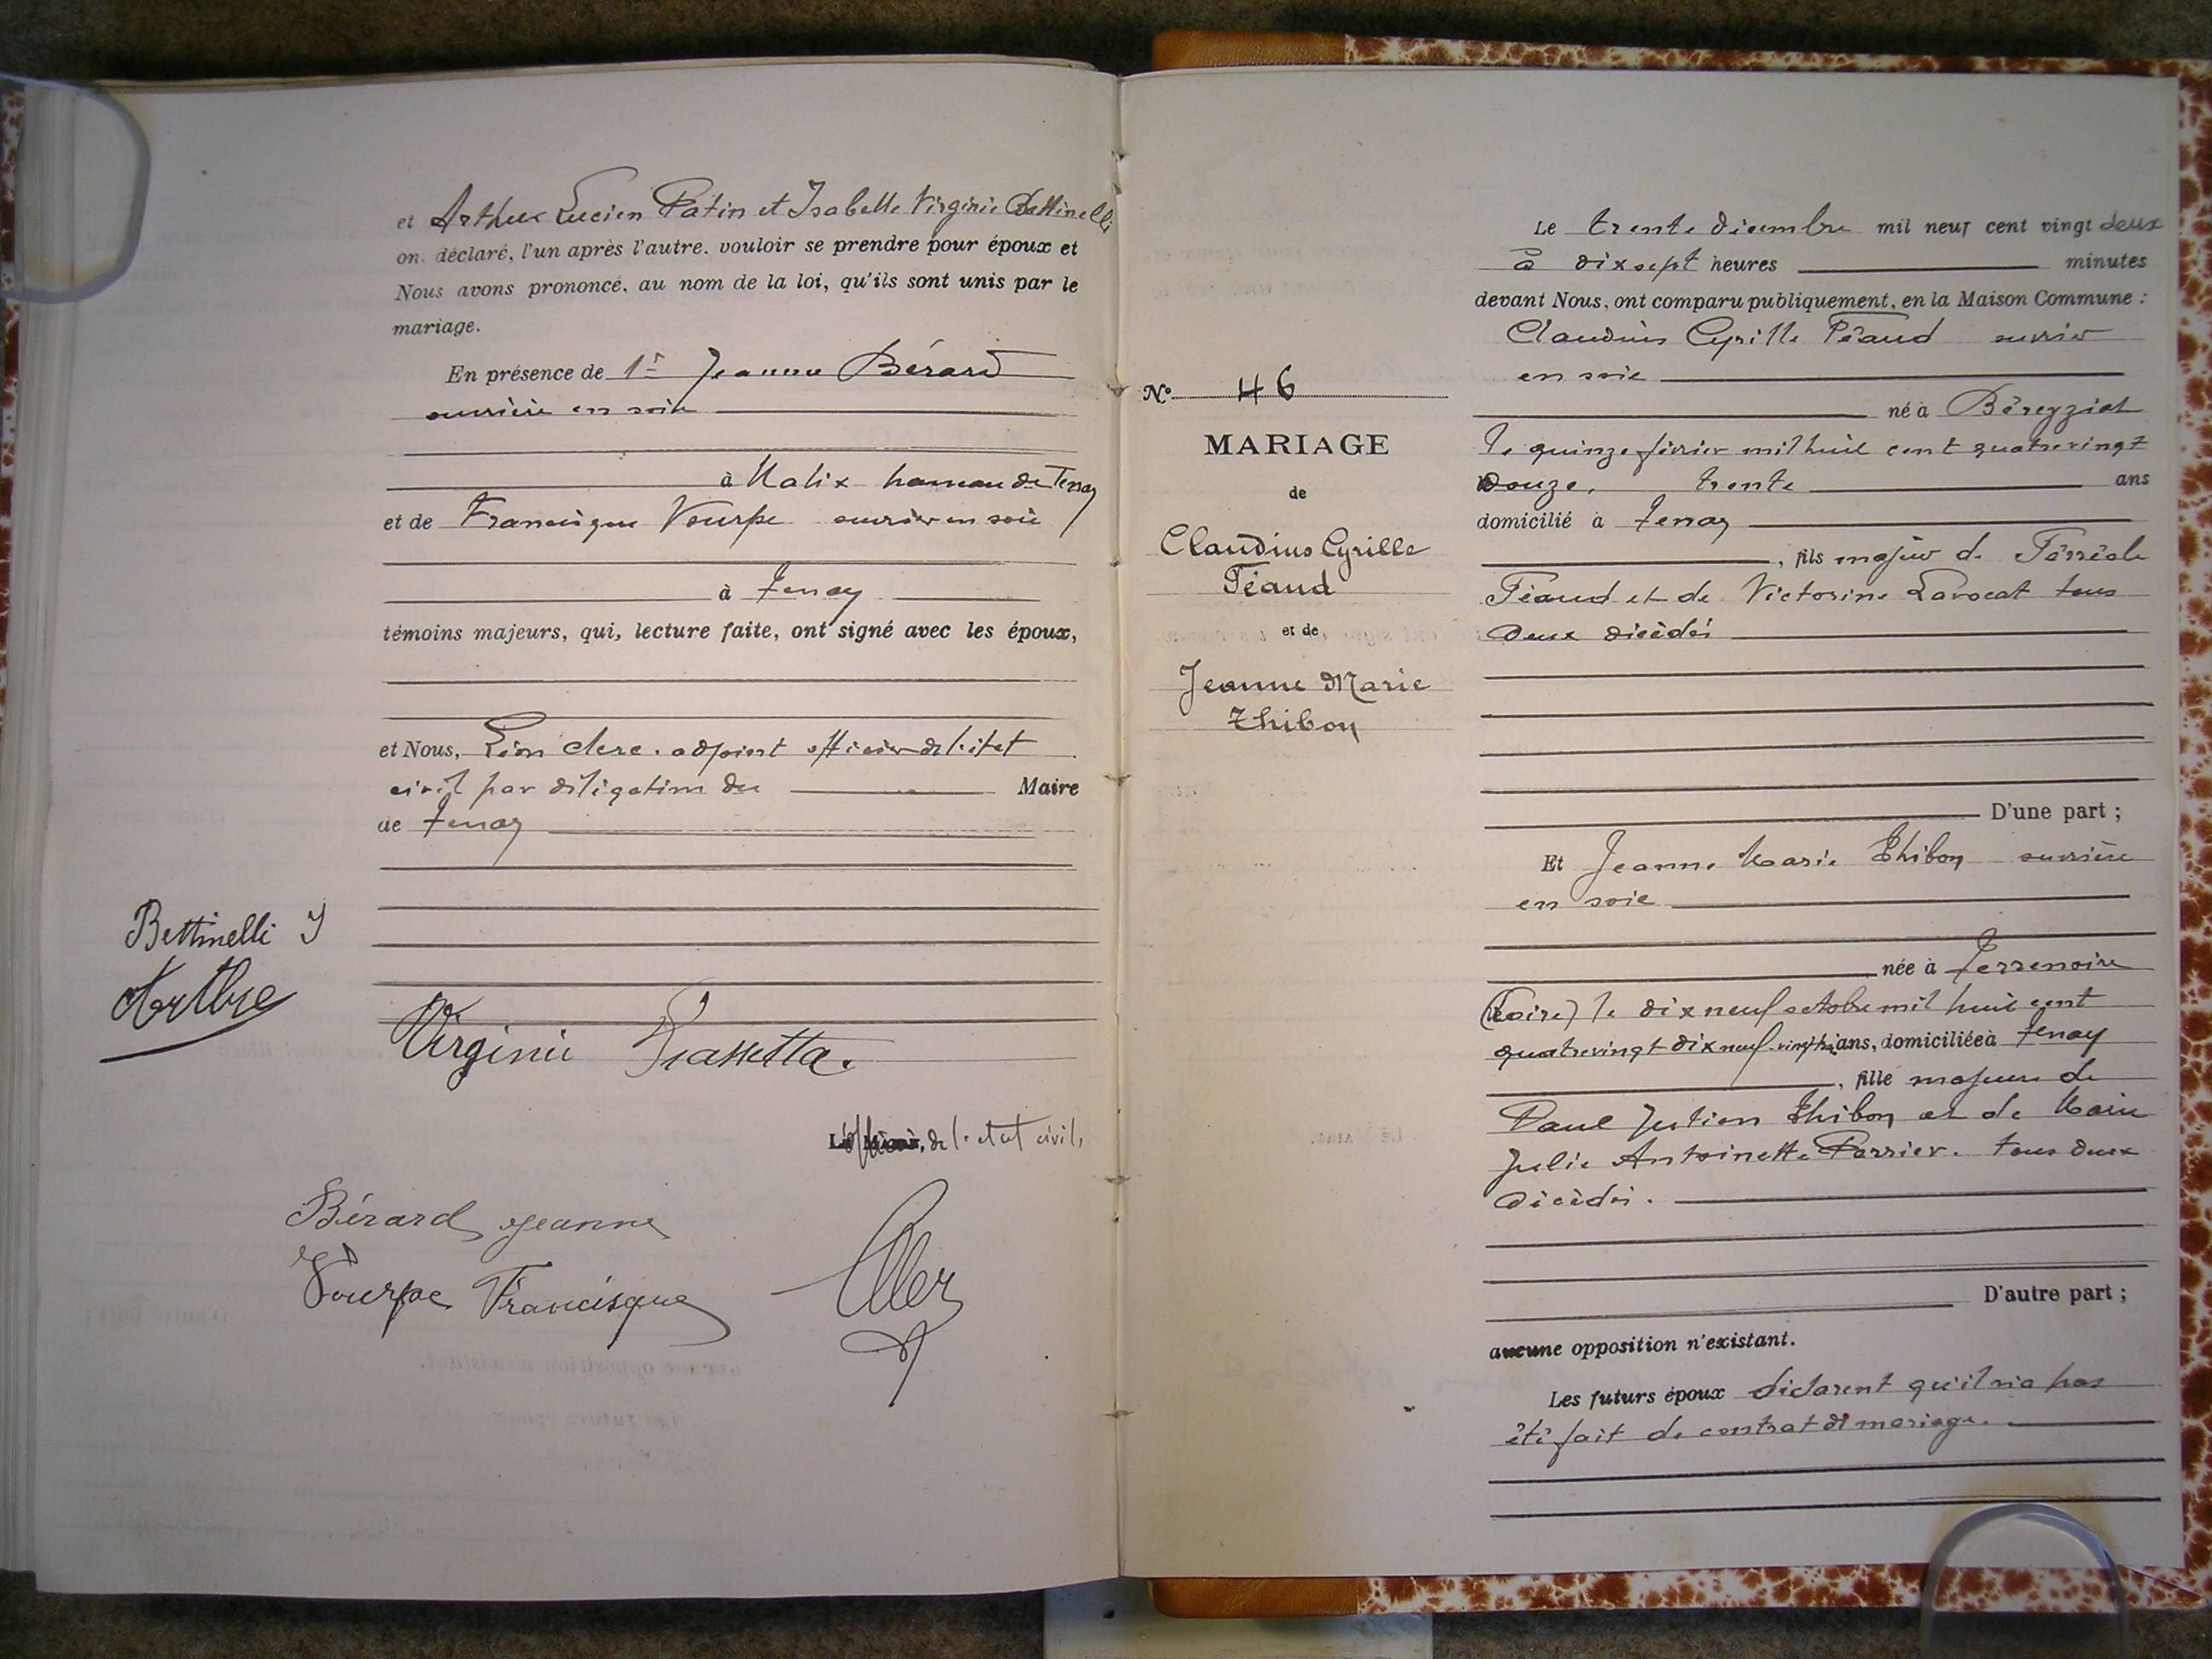 et Arthur Lucien Patin et Isabelle Virginie Bettinelli
on. déclaré, l'un après l'autre. vouloir se prendre pour époux et
Nous avons prononcé, au nom de la loi, qu'ils sont unis par le
mariage.
En présence de 1º Jeanne Bérard
ouvrière en soie
à Malix hameau de Tenay
et de Francisque Vourpe ouvrier en soie
à Tenay
témoins majeurs, qui, lecture faite, ont signé avec les époux,
et Nous, Léon Clerc. adjoint officier de l'état
civil par délégation du Maire
de Tenay
Bettinelli Y
Arthur
Virginie
de l'etat civil,
Bérard Jeanne
Vourpe Francisque
Nº 46
MARIAGE
de
Claudius Cyrille
Féaud
et de
Jeanne Marie
Thibon
Le trente décembre mil neuf cent vingt deux
à dix sept heures minutes
devant Nous, ont comparu publiquement, en la Maison Commune :
Claudius Cyrille Féaud ouvrier
en soie
né à Béreyziat
le quinze février mil huit cent quatrevingt
douze, trente ans
domicilié à Tenay
, fils majeur de Férréole
Féaud et de Victorine Lavocat tous
deux décédés
D'une part ;
Et Jeanne Marie Thibon ouvrière
en soie
née à Terrenoire
(Loire) le dix neuf octobre mil huit cent
quatrevingt dix neuf. vingt trois ans, domiciliée à Tenay
, fille majeure de
Paul Justien Thibon et de Marie
Julie Antoinette Perrier. tous deux
décédés.
D'autre part ;
aucune opposition n'existant.
Les futurs époux déclarent qu'il n'a pas
été fait de contrat de mariage.